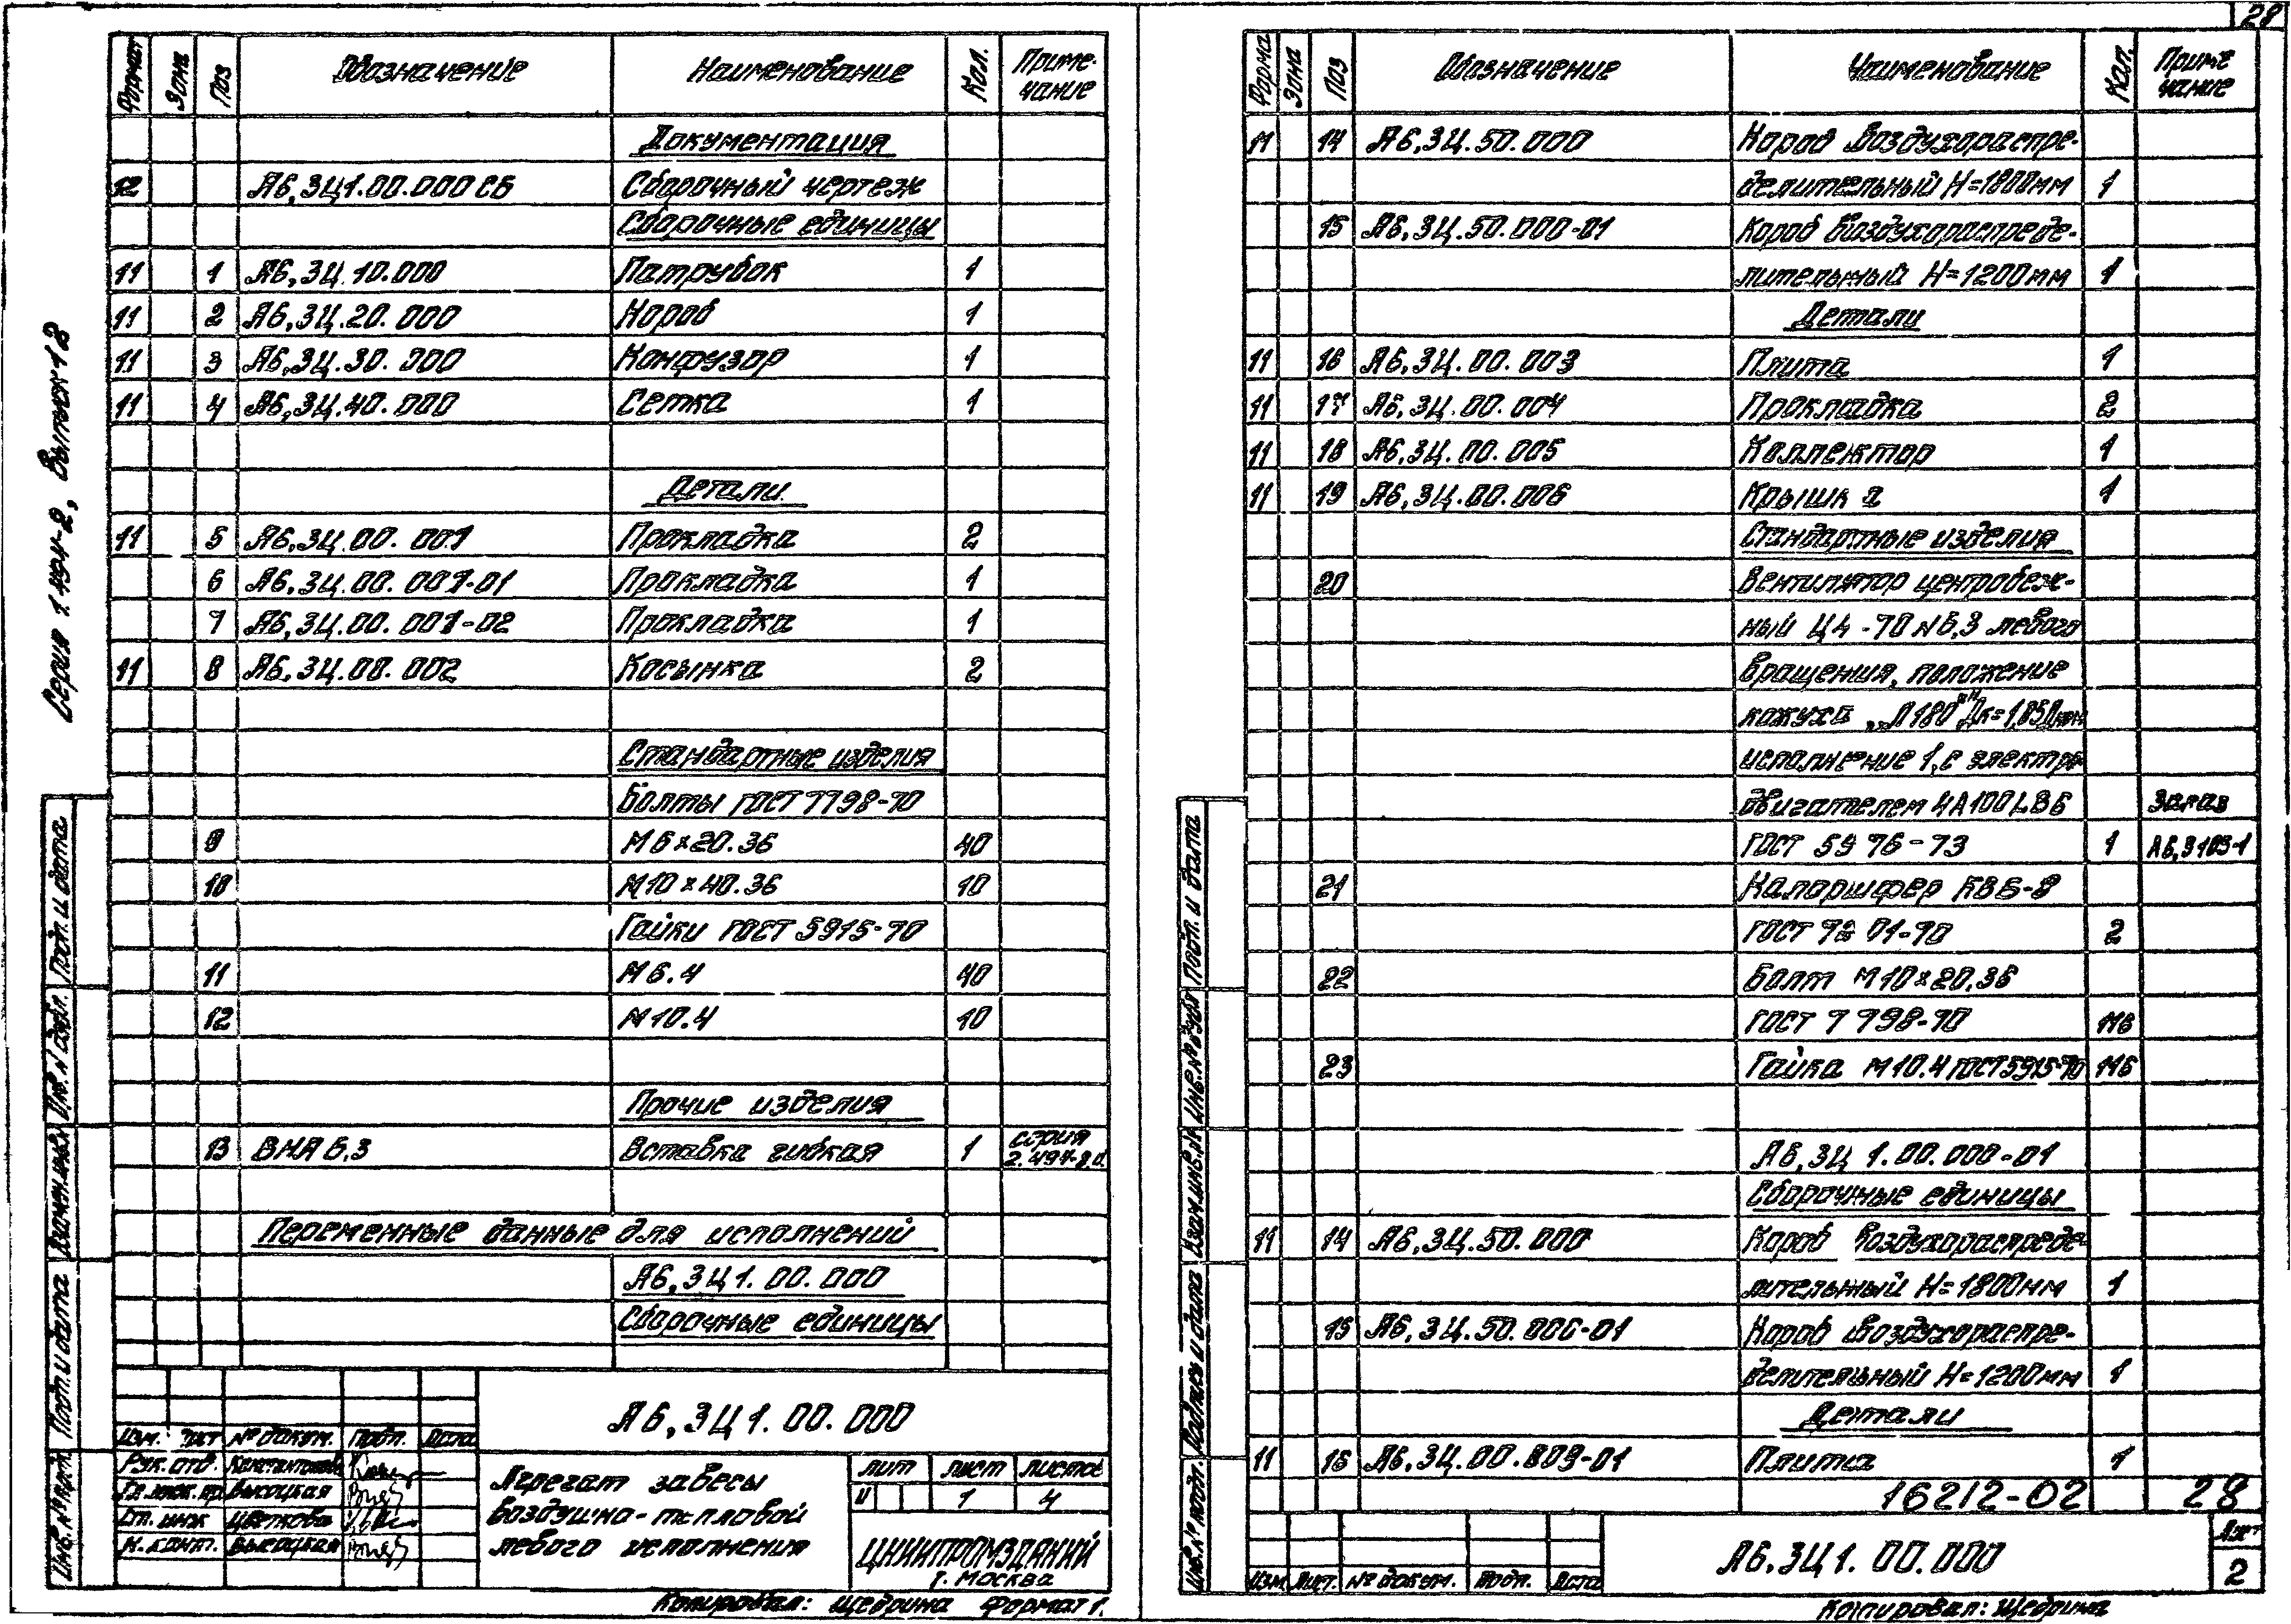 28
Серия 1.494-2, Выпуск 12
Формат Зона Поз Обозначение Наименование Кол. Приме-
чание
Документация
12 А6,3Ц1.00.000 СБ Сборочный чертеж
Сборочные единицы
11 1 А6,3Ц.10.000 Патрубок 1
11 2 А6,3Ц.20.000 Короб 1
11 3 А6,3Ц.30.000 Конфузор 1
11 4 А6,3Ц.40.000 Сетка 1
Детали
11 5 А6,3Ц.00.001 Прокладка 2
6 А6,3Ц.00.001-01 Прокладка 1
7 А6,3Ц.00.001-02 Прокладка 1
11 8 А6,3Ц.00.002 Косынка 2
Стандартные изделия
Болты ГОСТ 7798-70
9 М6×20.36 40
10 М10×40.36 10
Гайки ГОСТ 5915-70
11 М6.4 40
12 М10.4 10
Прочие изделия
13 ВНА 6,3 Вставка гибкая 1 серия
Переменные данные для исполнений
А6,3Ц1.00.000
Сборочные единицы
А6,3Ц1.00.000
Изм. Лист № докум. Подп. Дата
Рук. отд. Константинова
Гл. инж. пр. Высоцкая
Ст. инж Цветкова
Н. конт. Высоцкая
Агрегат завесы
воздушно-тепловой
левого исполнения
Лит Лист Листов
И 1 4
ЦНИИПРОМЗДАНИЙ
г. Москва
Копировал: Щедрина Формат 1.
Подп. и дата
Инв. № дубл.
Взамен инв. №
Подп. и дата
Инв. № подл.
Форма Зона Поз Обозначение Наименование Кол. Приме
чание
11 14 А6,3Ц.50.000 Короб воздухораспре-
делительный Н=1800мм 1
15 А6,3Ц.50.000-01 Короб воздухораспреде-
лительный Н=1200мм 1
Детали
11 16 А6,3Ц.00.003 Плита 1
11 17 А6,3Ц.00.004 Прокладка 2
11 18 А6,3Ц.00.005 Коллектор 1
11 19 А6,3Ц.00.006 Крышка 1
Стандартные изделия
20 Вентилятор центробеж-
ный Ц4-70 №6,3 левого
вращения, положение
кожуха „Л180°" Дк=1,05Дном
исполнение 1, с электро
двигателем 4А100LB6 Завод
ГОСТ 5976-73 1 А6,3105-1
21 Калорифер КВБ-8
ГОСТ 7201-70 2
22 Болт М10×20.36
ГОСТ 7798-70 116
23 Гайка М10.4 ГОСТ 5915-70 116
А6,3Ц1.00.000-01
Сборочные единицы
11 14 А6,3Ц.50.000 Короб воздухораспреде-
лительный Н=1800мм 1
15 А6,3Ц.50.000-01 Короб воздухораспре-
делительный Н=1200мм 1
Детали
11 16 А6,3Ц.00.003-01 Плита 1
16212-02 28
А6,3Ц1.00.000
Лист
2
Изм Лист. № докум. Подп. Дата
Копировал: Щедрина
Подп. и дата
Инв. № дубл
Взам. инв. №
Подпись и дата
Инв. № подл.